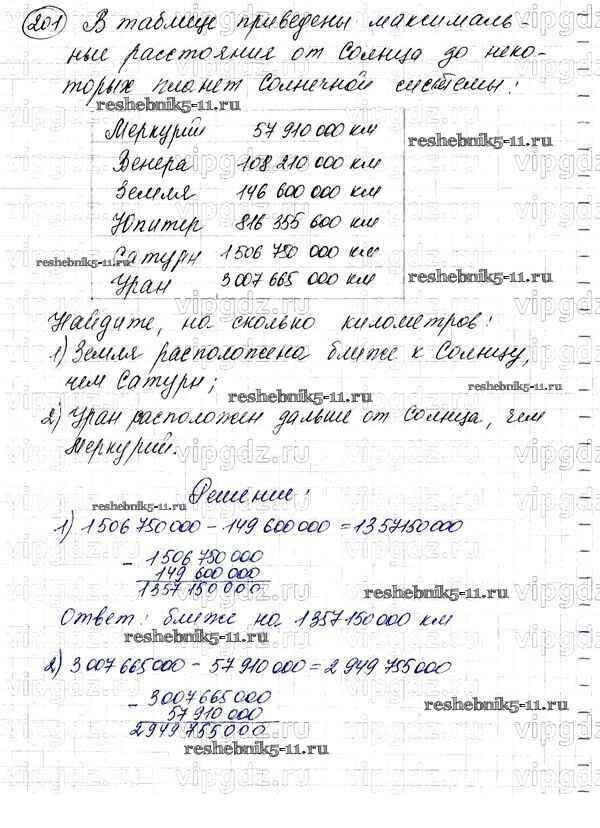 201 В таблице приведены максималь-
ные расстояния от Солнца до неко-
торых планет Солнечной системы:
reshebnik5-11.ru
Меркурий 57 910 000 км
reshebnik5-11.ru
Венера 108 210 000 км
Земля 146 600 000 км
Юпитер 816 355 600 км
Сатурн 1 506 750 000 км
reshebnik5-11.ru
Уран 3 007 665 000 км
reshebnik5-11.ru
Найдите, на сколько километров:
1) Земля расположена ближе к Солнцу,
чем Сатурн;
reshebnik5-11.ru
reshebnik5-11.ru
2) Уран расположен дальше от Солнца, чем
Меркурий.
Решение:
reshebnik5-11.ru
1) 1 506 750 000 - 149 600 000 = 1 357 150 000
- 1 506 750 000
149 600 000
1357 150 000
reshebnik5-11.ru
Ответ: ближе на 1 357 150 000 км
reshebnik5-11.ru
2) 3 007 665 000 - 57 910 000 = 2 949 755 000
- 3007665 000
57 910 000
2949 755 000
reshebnik5-11.ru
reshebnik5-11.ru